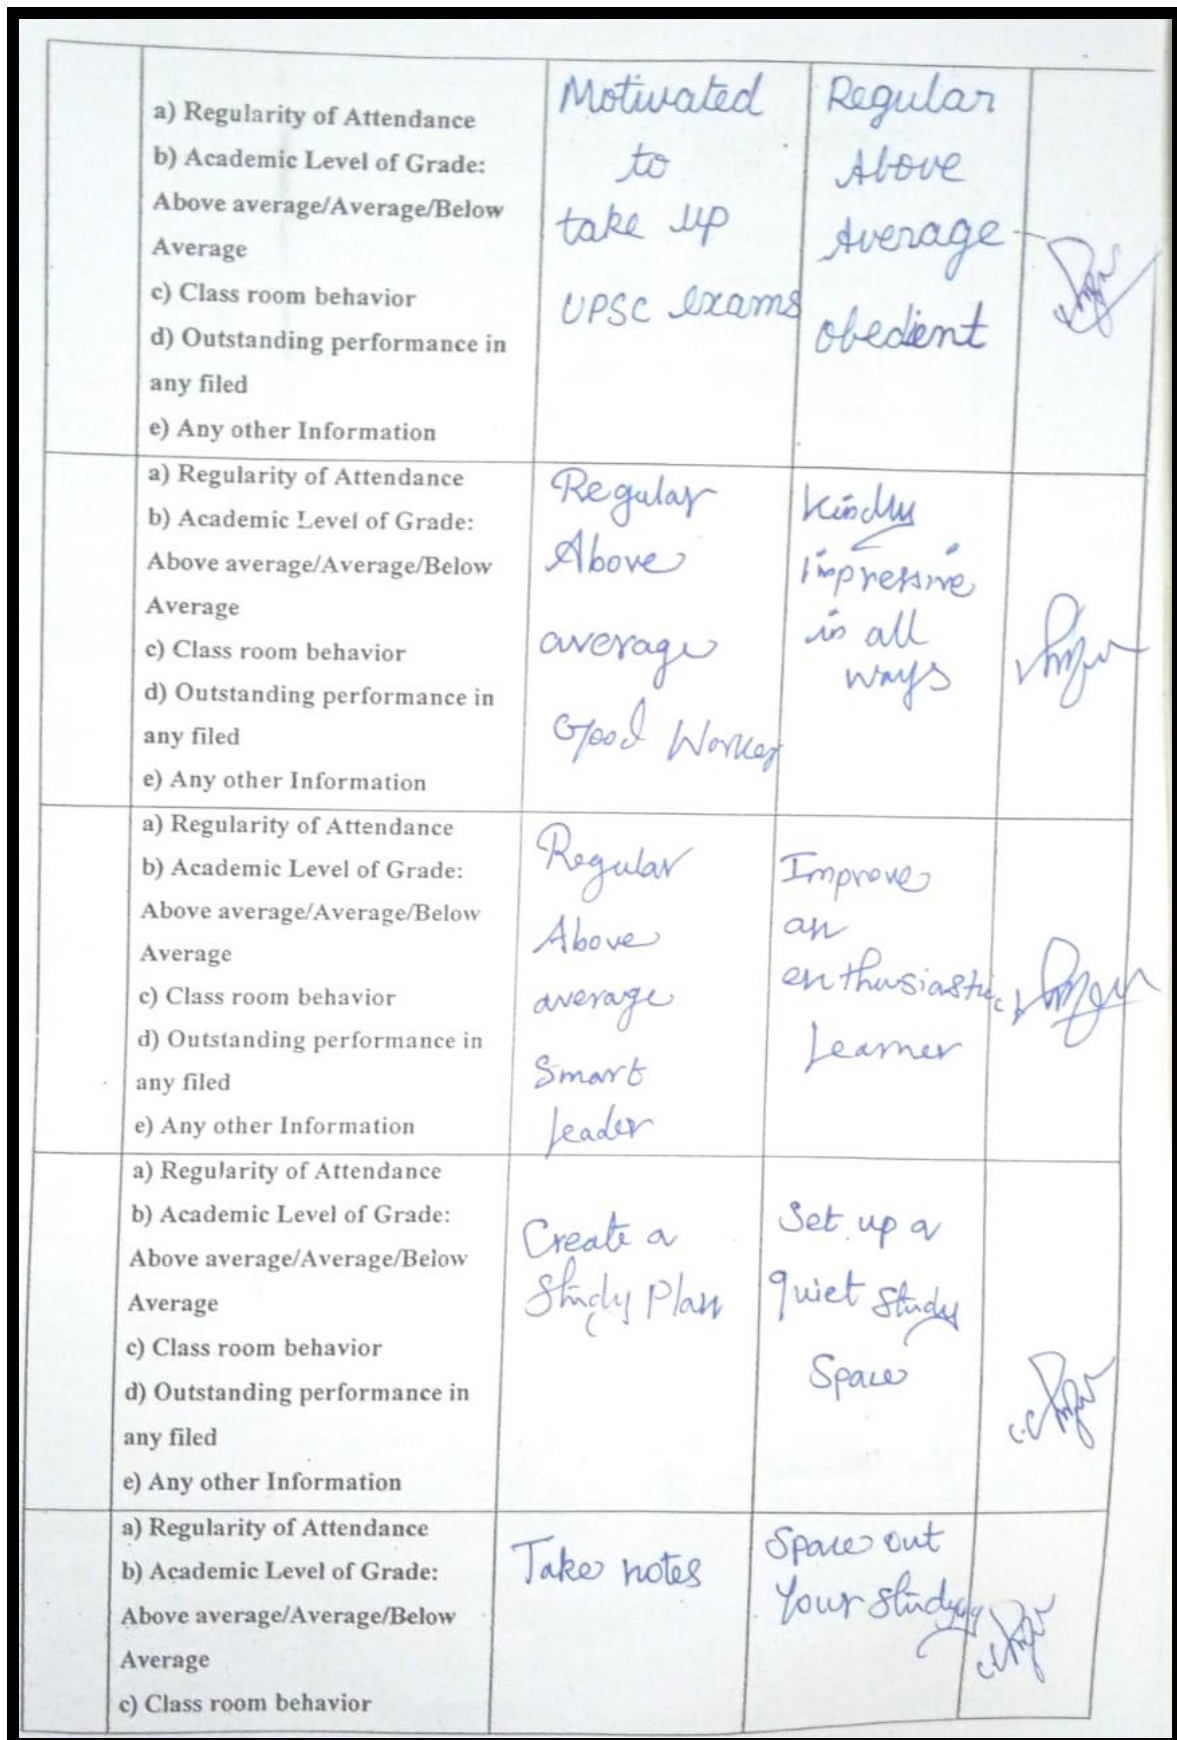 a) Regularity of Attendance
b) Academic Level of Grade:
Above average/Average/Below
Average
c) Class room behavior
d) Outstanding performance in
any filed
e) Any other Information
Motivated
to
take up
UPSC exams
Regular
Above
Average
obedient
a) Regularity of Attendance
b) Academic Level of Grade:
Above average/Average/Below
Average
c) Class room behavior
d) Outstanding performance in
any filed
e) Any other Information
Regular
Above
average
Good Worker
Kindly
impressive
in all
ways
a) Regularity of Attendance
b) Academic Level of Grade:
Above average/Average/Below
Average
c) Class room behavior
d) Outstanding performance in
any filed
e) Any other Information
Regular
Above
average
Smart
Leader
Improve
an
enthusiastic
Learner
a) Regularity of Attendance
b) Academic Level of Grade:
Above average/Average/Below
Average
c) Class room behavior
d) Outstanding performance in
any filed
e) Any other Information
Create a
Study Plan
Set up a
quiet study
Space
a) Regularity of Attendance
b) Academic Level of Grade:
Above average/Average/Below
Average
c) Class room behavior
Take notes
Space out
Your studying